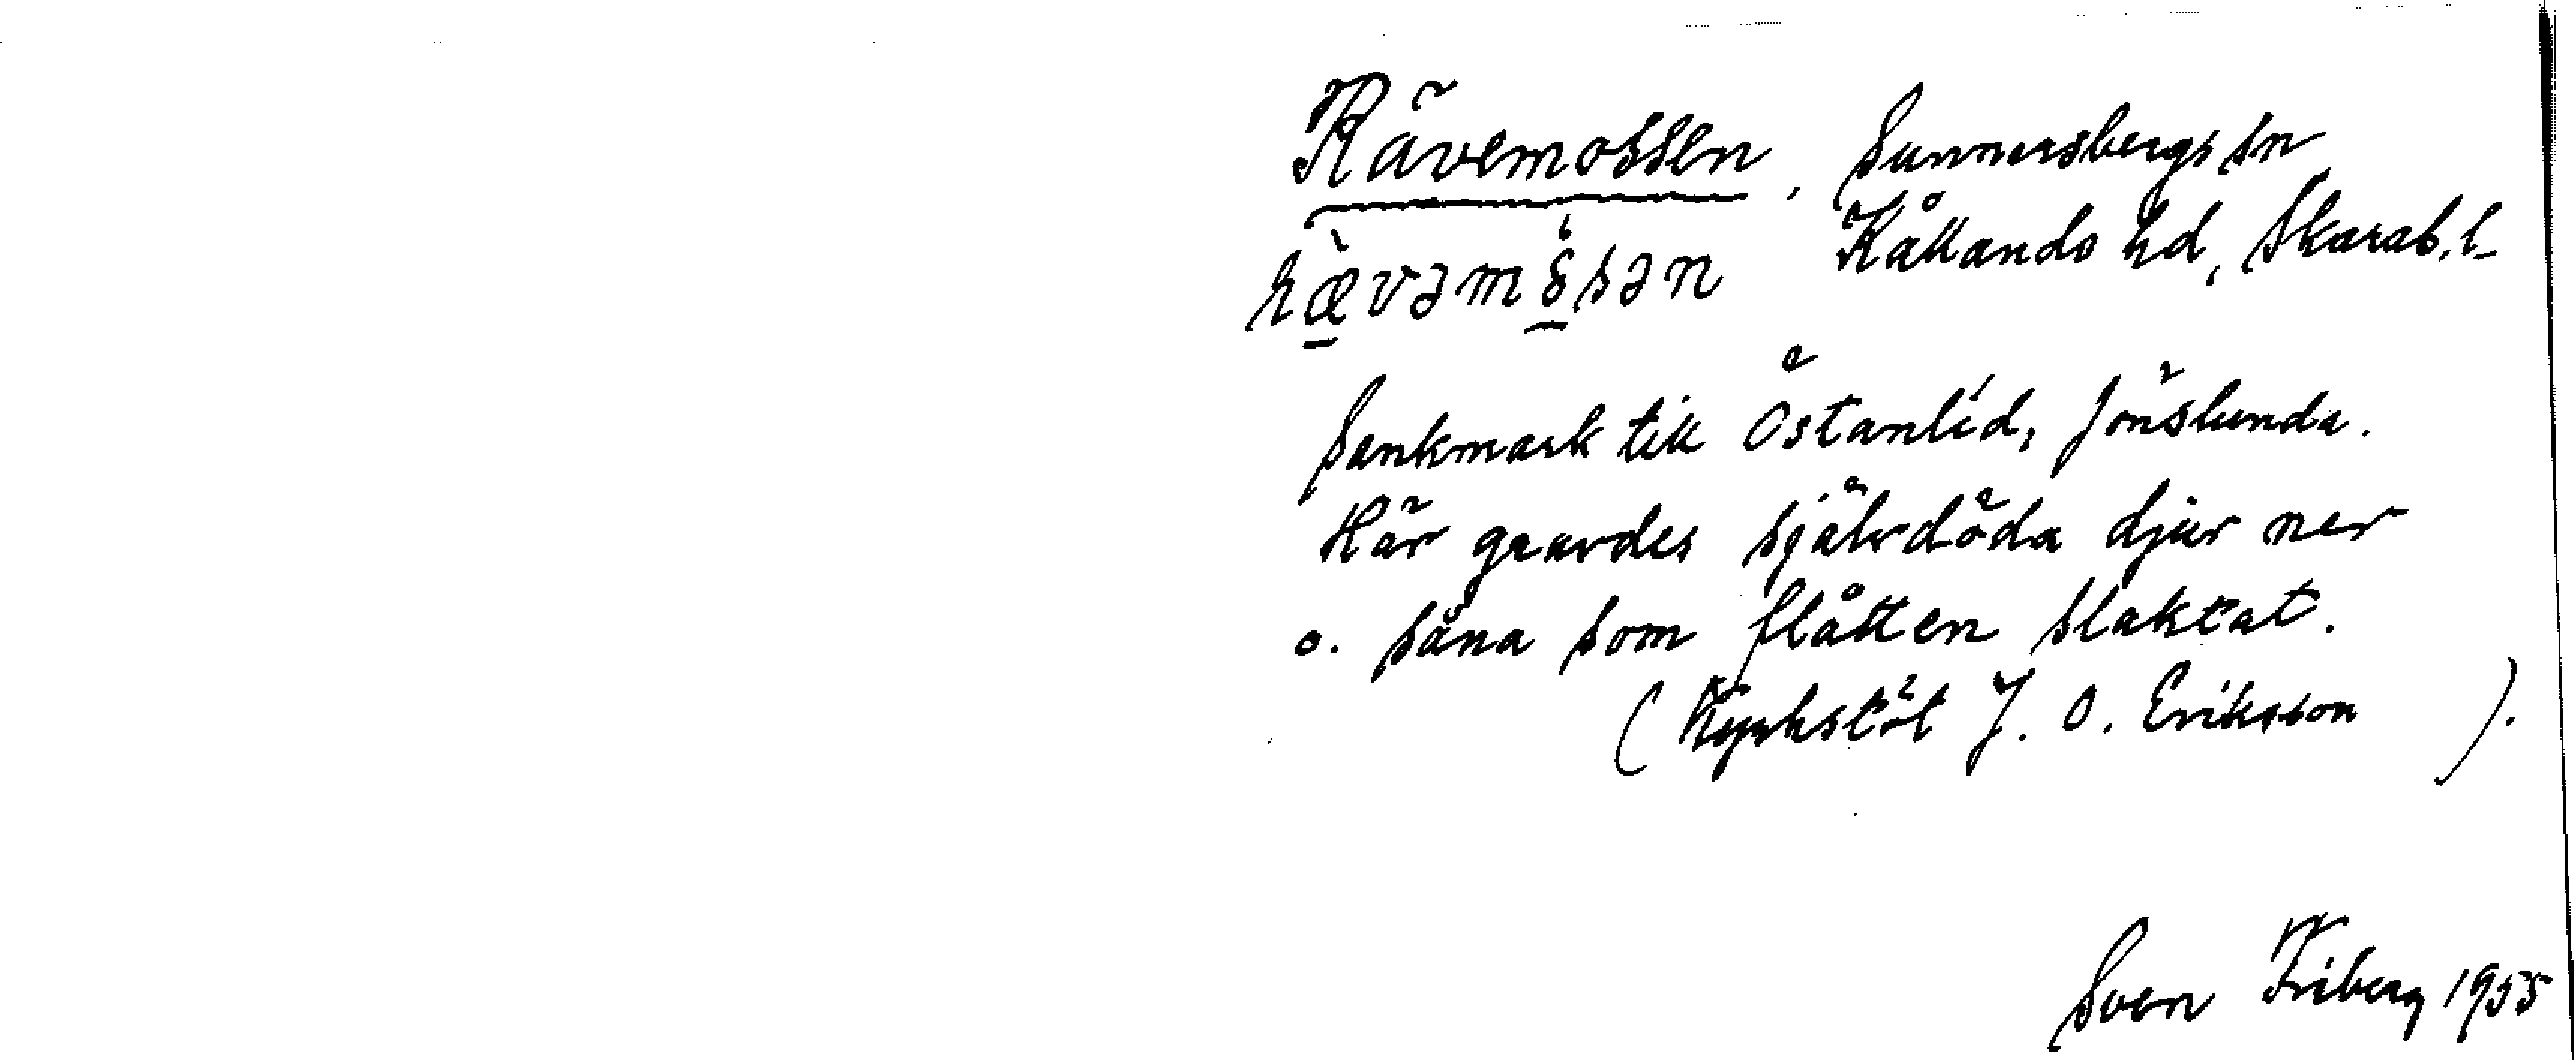 Rävemossen, Sunnersbergs sn
Kållands hd, Skarab. l.
ræ̀vəmòsən
Sankmark till Östanlid, Jönslunda.
Här gravdes självdöda djur ner
o. såna som flåtten slaktat.
(Kyrkstöt J. O. Eriksson ).
Sven Friberg 1955